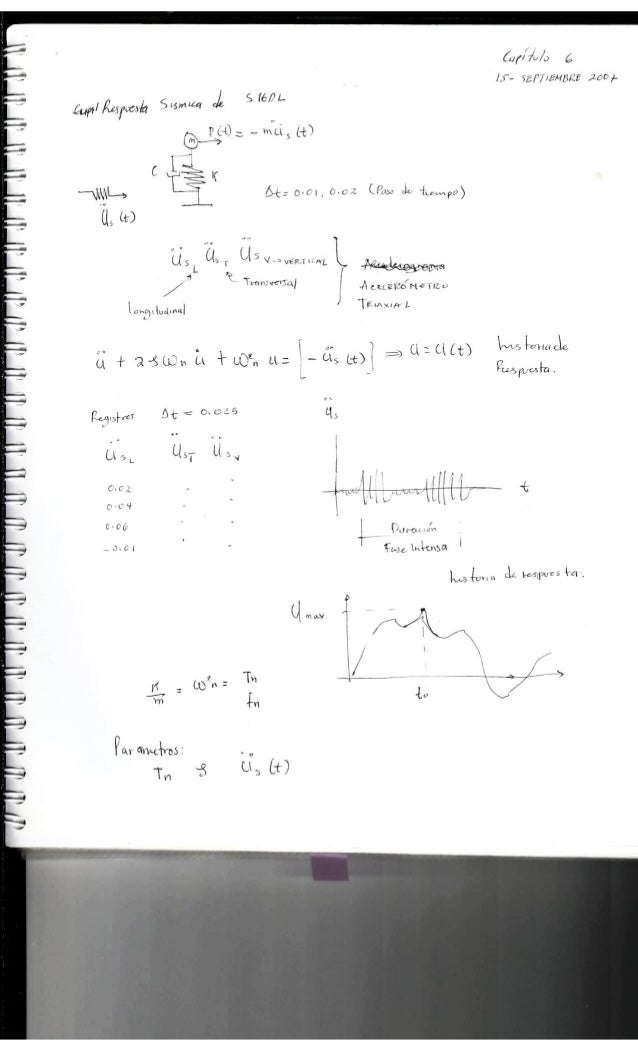 Capítulo 6
15- SEPTIEMBRE 2007
Respuesta Sismica de S1GDL
m P(t) = - m üs (t)
C K
Δt= 0.01, 0.02 (Paso de tiempo)
üs (t)
üs L üs T üs V → VERTICAL
Transversal
Longitudinal
ACELERÓMETRO
TRIAXIAL
ü + 2ζωn u̇ + ω²n u = [- üs (t)] ⇒ u = u(t) historia de
Respuesta.
Registros Δt = 0.025
üs
üsL üsT üsV
0.02
0.04
0.06
-0.01
t
Duración
Fase Intensa
historia de respuesta.
umax
to
K/m = ω²n = Tn
fn
Parametros:
Tn ζ üs (t)